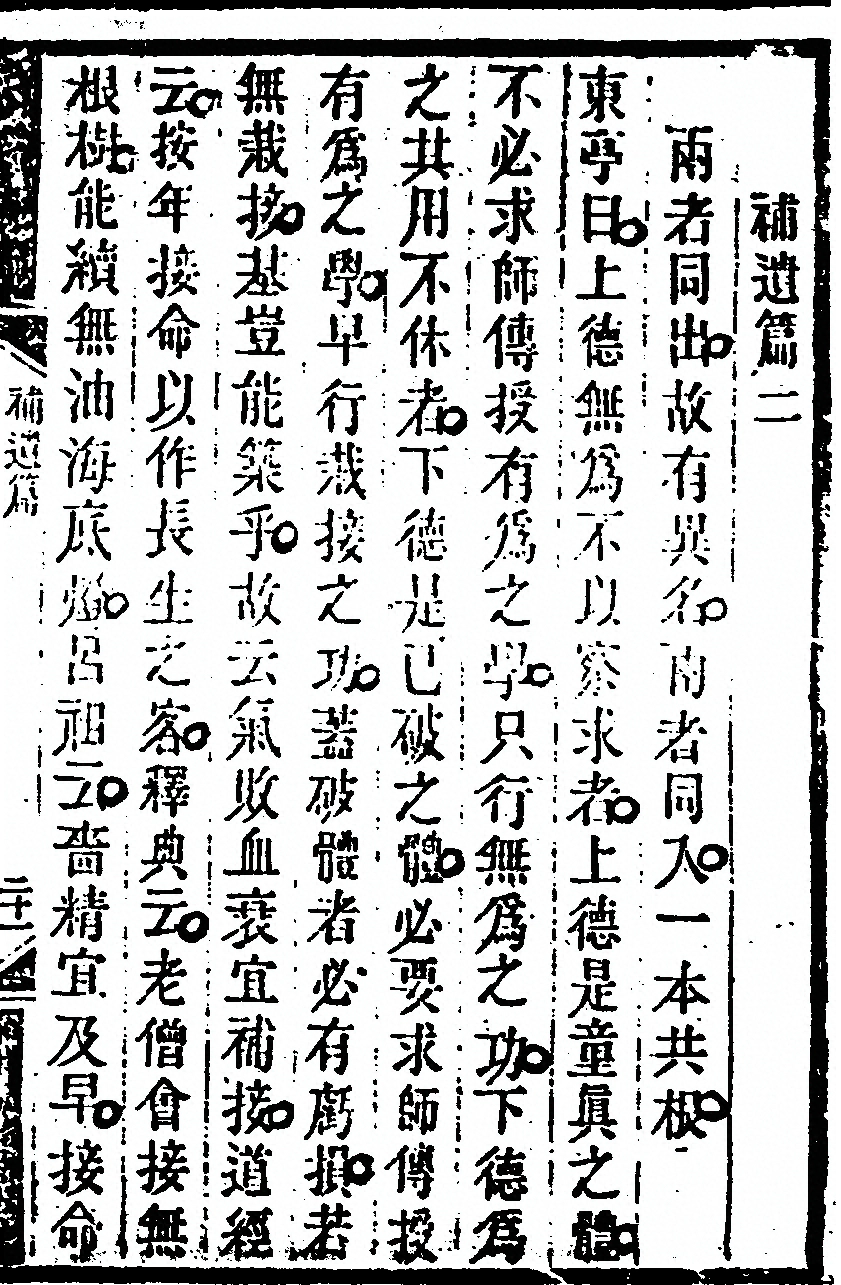 補遺篇二
兩者同出。故有異名。兩者同入。一本共根。
東亭曰。上德無爲不以察求者。上德是童眞之體。
不必求師傳授有爲之學。只行無爲之功。下德爲
之其用不休者。下德是已破之體。必要求師傳授
有爲之學。早行栽接之功。蓋破體者必有虧損。若
無栽接。基豈能築乎。故云氣敗血衰宜補接。道經
云。按年接命以作長生之客。釋典云。老僧會接無
根樹。能續無油海底燈。呂祖云。嗇精宜及早。接命
補遺篇
二十一